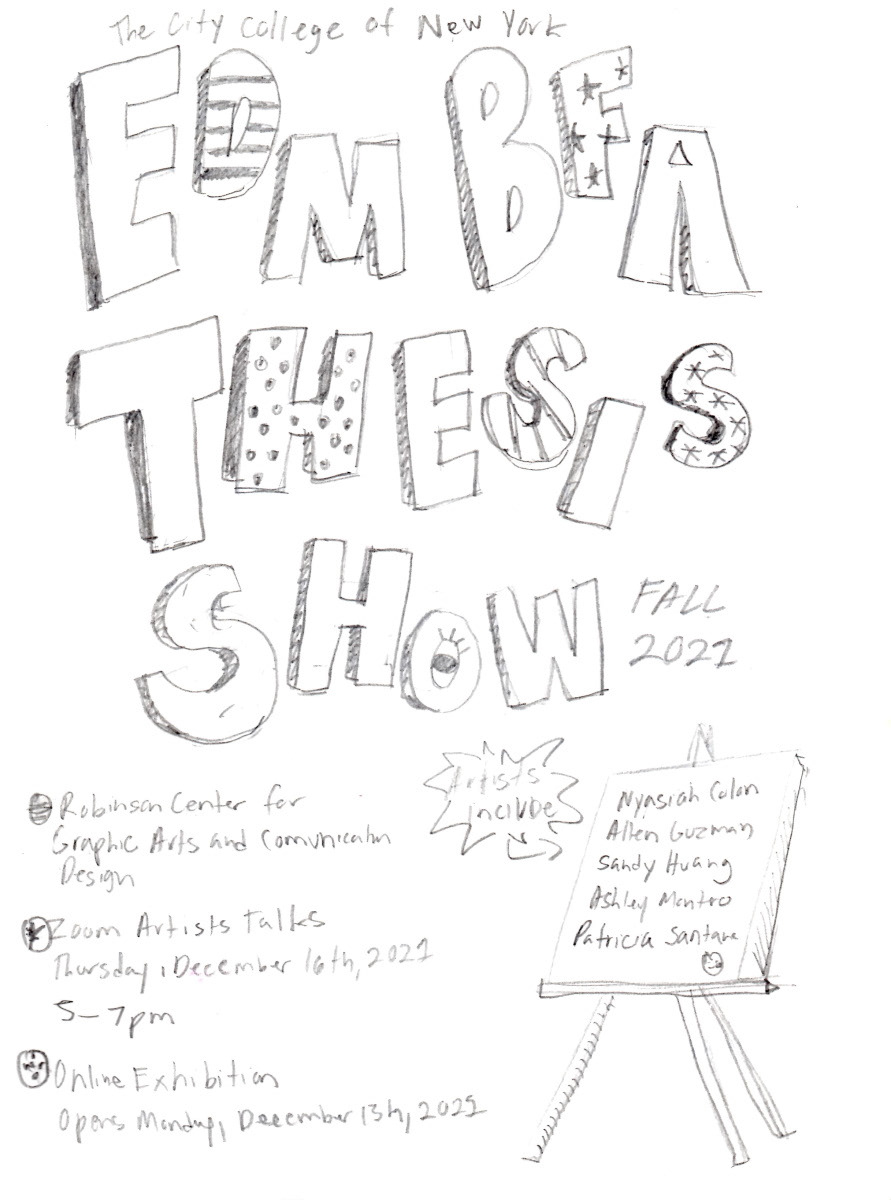 The City College of New York
EDM BFA
THESIS
SHOW
FALL
2021
Robinson Center for
Graphic Arts and Comunicatn
Design
Zoom Artists Talks
Thursday, December 16th, 2021
5-7pm
Online Exhibition
Opens Monday, December 13th, 2021
Artists
Include
Nyasiah Colon
Allen Guzman
Sandy Huang
Ashley Montro
Patricia Santana